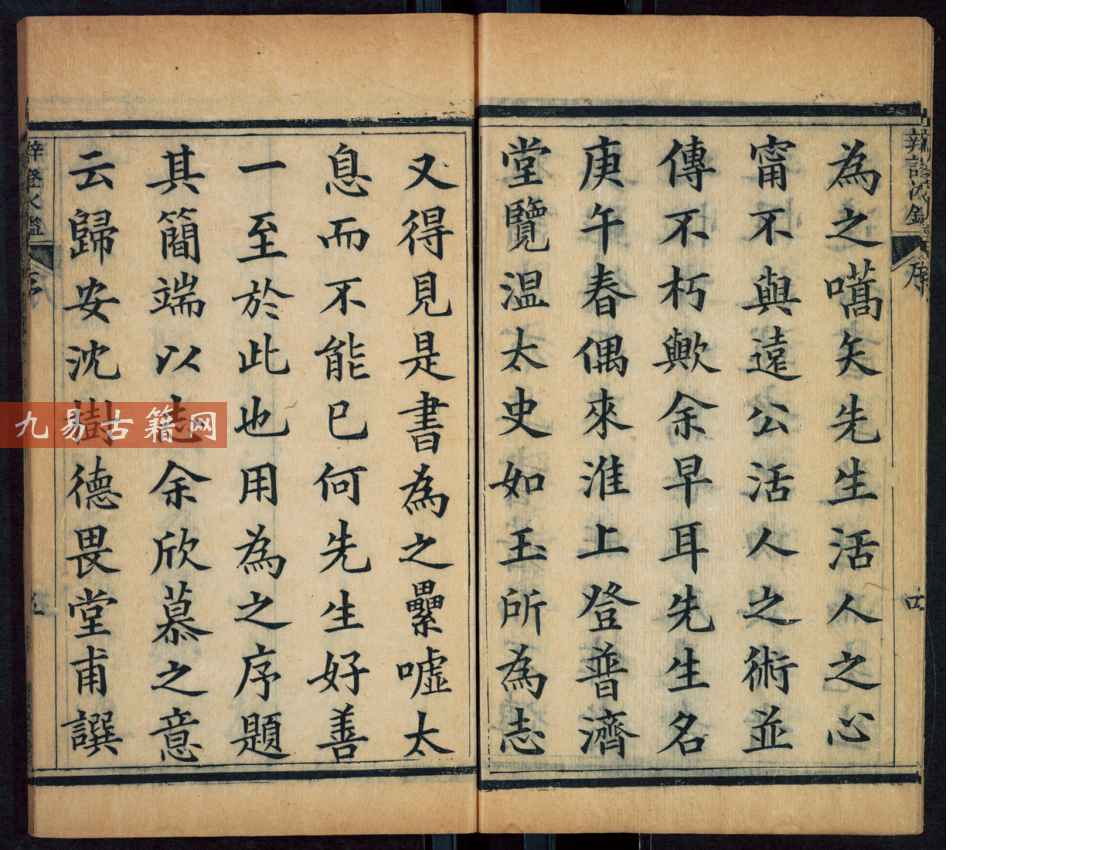 為之嚆矢先生活人之心
甯不與遠公活人之術並
傳不朽歟余早耳先生名
庚午春偶來淮上登普濟
堂覽温太史如玉所為志
又得見是書為之纍噓太
息而不能已何先生好善
一至於此也用為之序題
其簡端以志余欣慕之意
云歸安沈樹德畏堂甫譔
序
九易古籍网